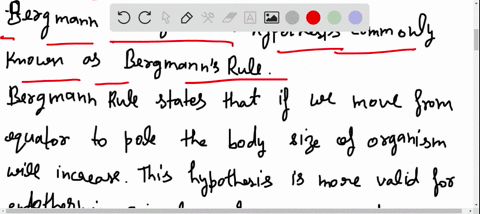 Bergmann hypothesis commonly
known as Bergmann's Rule.
Bergmann Rule states that if we move from
equator to pole the body size of organism
will increase. This hypothesis is more valid for